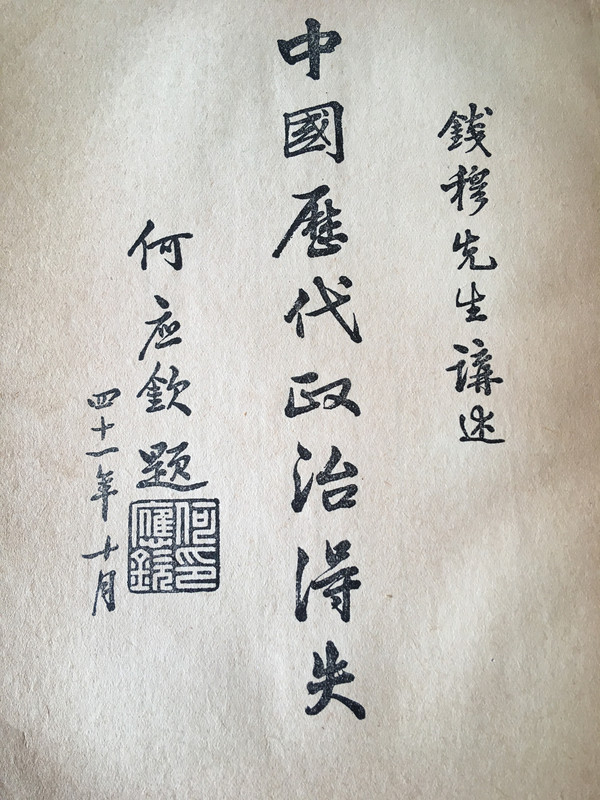 錢穆先生講述
中國歷代政治得失
何应欽題
四十一年十月
何應欽印